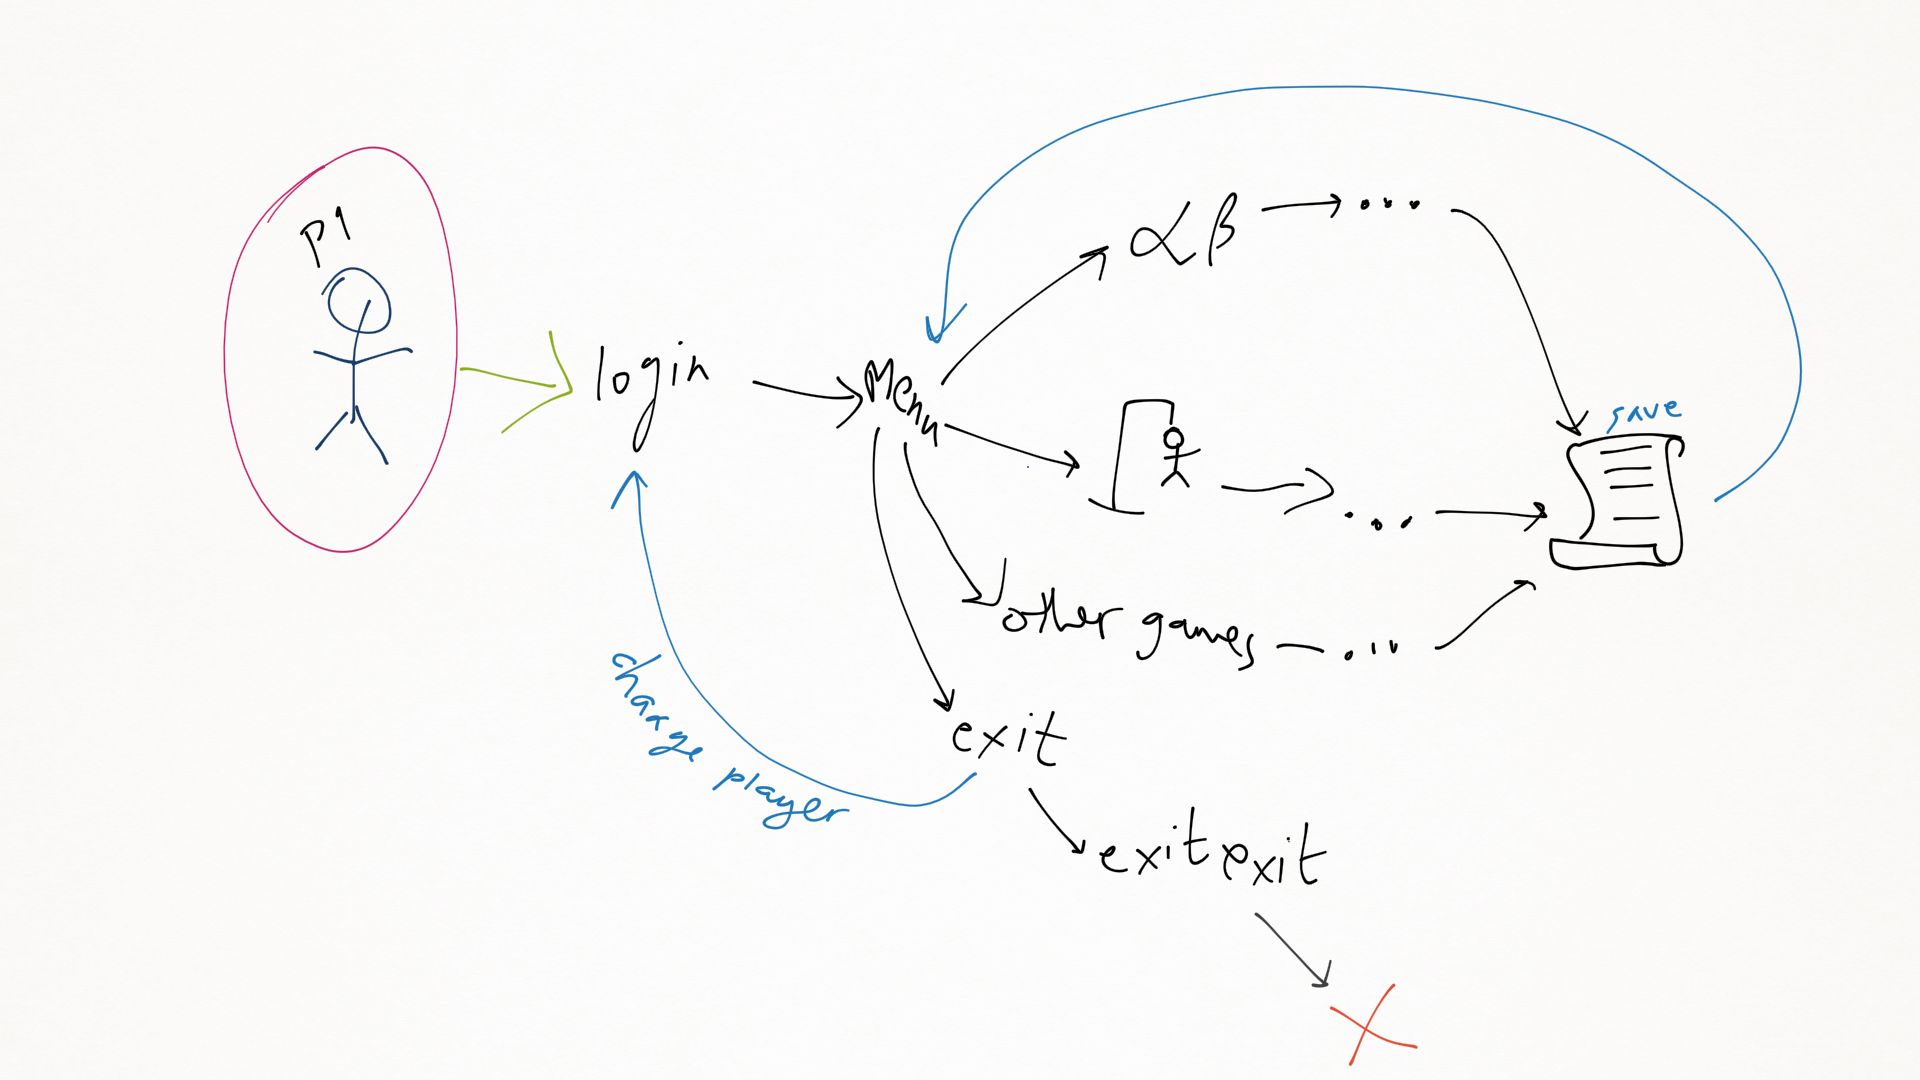 P1
login
Menu
αβ
...
...
save
other games
...
exit
change player
exit exit